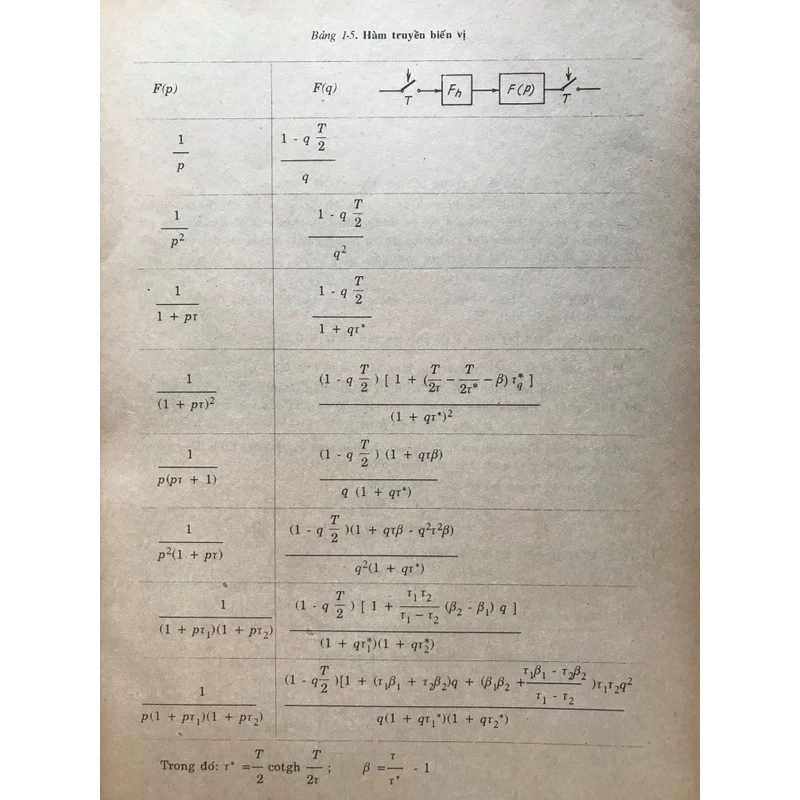 Bảng 1-5. Hàm truyền biến vị
F(p) F(q) T F_h F(p) T
1/p (1 - q T/2) / q
1/p² (1 - q T/2) / q²
1/(1 + pτ) (1 - q T/2) / (1 + qτ*)
1/(1 + pτ)² (1 - q T/2) [ 1 + (T/2τ − T/2τ* − β) τ*_q ] / (1 + qτ*)²
1/p(pτ + 1) (1 - q T/2) (1 + qτβ) / q (1 + qτ*)
1/p²(1 + pτ) (1 - q T/2)(1 + qτβ - q²τ²β) / q²(1 + qτ*)
1/(1 + pτ₁)(1 + pτ₂) (1 - q T/2) [ 1 + τ₁τ₂/(τ₁ − τ₂) (β₂ - β₁) q ] / (1 + qτ₁*)(1 + qτ₂*)
1/p(1 + pτ₁)(1 + pτ₂) (1 - q T/2)[1 + (τ₁β₁ + τ₂β₂)q + (β₁β₂ + (τ₁β₁ - τ₂β₂)/(τ₁ - τ₂))τ₁τ₂q² / q(1 + qτ₁*)(1 + qτ₂*)
Trong đó: τ* = T/2 cotgh T/2τ ; β = τ/τ* - 1